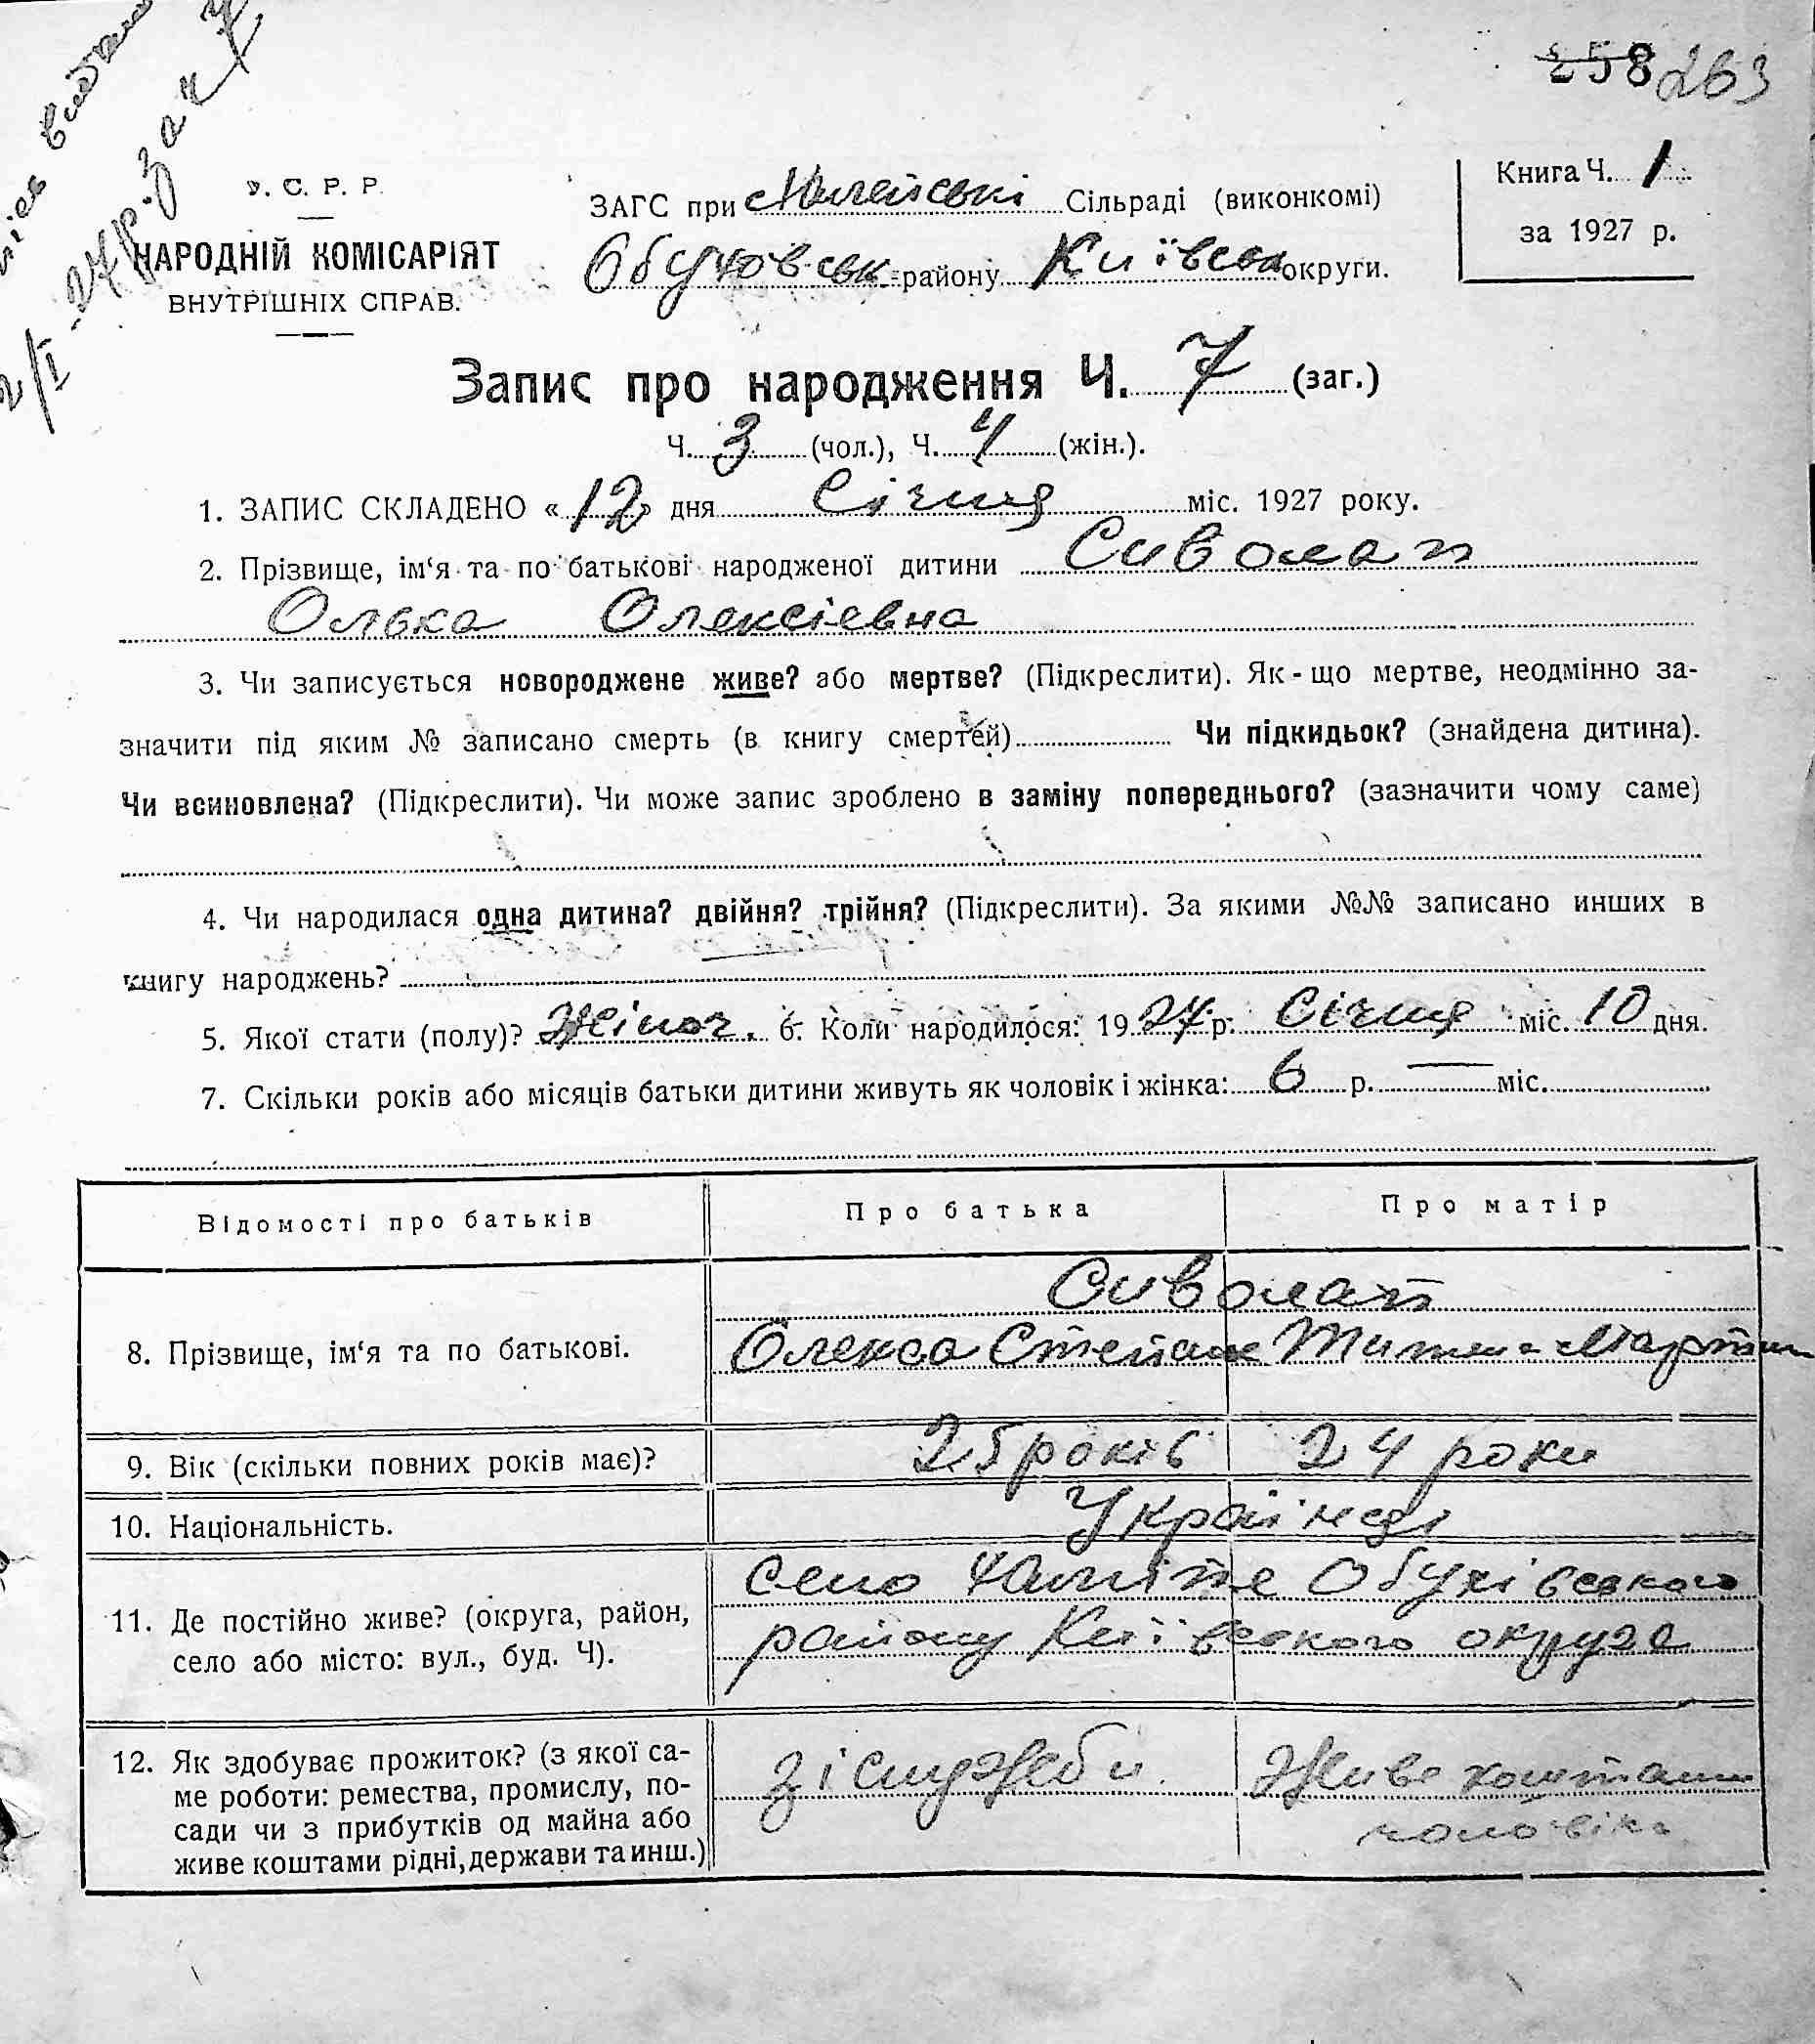 258 263
У. С. Р. Р.
НАРОДНІЙ КОМІСАРІЯТ
ВНУТРІШНІХ СПРАВ.
ЗАГС при Сільраді (виконкомі)
Обуховськ району Київськ округи.
Книга Ч. 1
за 1927 р.
Запис про народження Ч. 7 (заг.)
Ч. 3 (чол.), Ч. 4 (жін.).
1. ЗАПИС СКЛАДЕНО «12» дня Січня міс. 1927 року.
2. Прізвище, ім‘я та по батькові народженої дитини Сиволап
Олька Олексієвна
3. Чи записується новороджене живе? або мертве? (Підкреслити). Як-що мертве, неодмінно за-
значити під яким № записано смерть (в книгу смертей) Чи підкидьок? (знайдена дитина).
Чи всиновлена? (Підкреслити). Чи може запис зроблено в заміну попереднього? (зазначити чому саме)
4. Чи народилася одна дитина? двійня? трійня? (Підкреслити). За якими №№ записано инших в
книгу народжень?
5. Якої стати (полу)? Жіноч. 6. Коли народилося: 1927 р. Січня міс. 10 дня.
7. Скільки років або місяців батьки дитини живуть як чоловік і жінка: 6 р. — міс.
Відомості про батьків Про батька Про матір
8. Прізвище, ім‘я та по батькові.
Сиволап
Олекса Степан
9. Вік (скільки повних років має)? 25 років 24 роки
10. Національність. Українці
11. Де постійно живе? (округа, район,
село або місто: вул., буд. Ч).
село Обухівського
району Київського округа
12. Як здобуває прожиток? (з якої са-
ме роботи: ремества, промислу, по-
сади чи з прибутків од майна або
живе коштами рідні, держави та инш.)
зі служби. Живе коштами
чоловіка